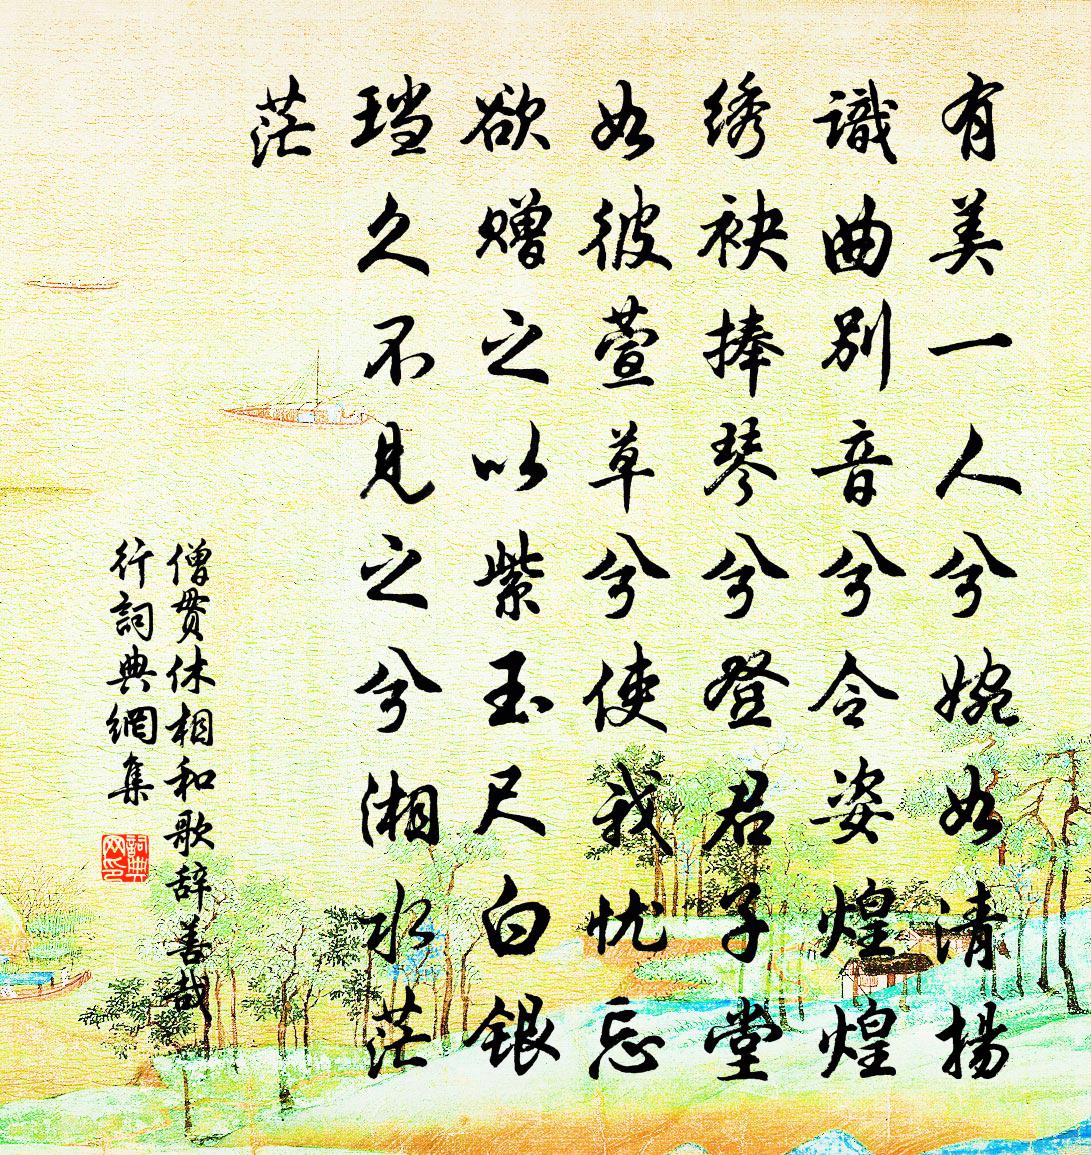 有美一人兮婉如清揚
識曲別音兮令姿煌煌
绣袂捧琴兮登君子堂
如彼萱草兮使我忧忘
欲赠之以紫玉尺白银
珰久不見之兮湘水茫
茫
僧贯休相和歌辞善哉
行詞典網集
詞典
网印